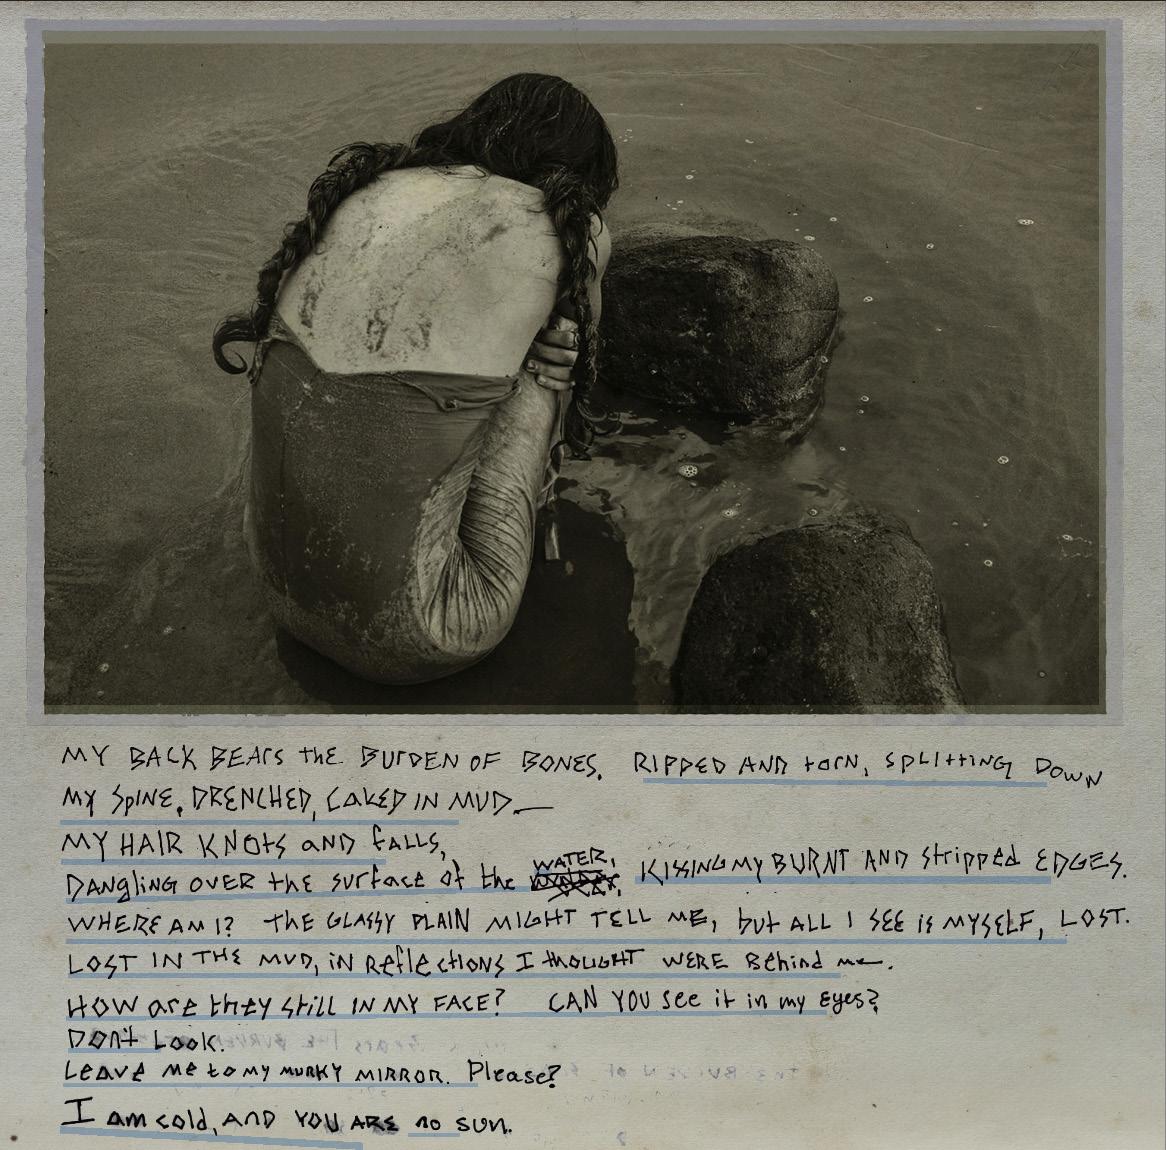 MY BACK BEArs the BUrDEN OF BONES. RIPPED AND torN, SPLIttING DOWN
MY SpINE, DRENCHED, CAKED IN MUD.
MY HAIR KNOts and FALLS,
DANgling OVER the surface of the WATER, KISSING MY BURNT AND Stripped EDGES.
WHERE AM I? THE GLASSY PLAIN MIGHT TELL ME, but ALL I SEE is MYSELF, LOST.
LOST IN THE MUD, iN REflEctIONS I thOUGHT WERE BEhind me.
HOW are thEy still IN MY FACE? CAN YOU SEE it in my EyEs?
DON't Look.
LEAVE ME to MY MURKY MIRROR. PlEasE?
I am cold, AND YOU ARE no sun.